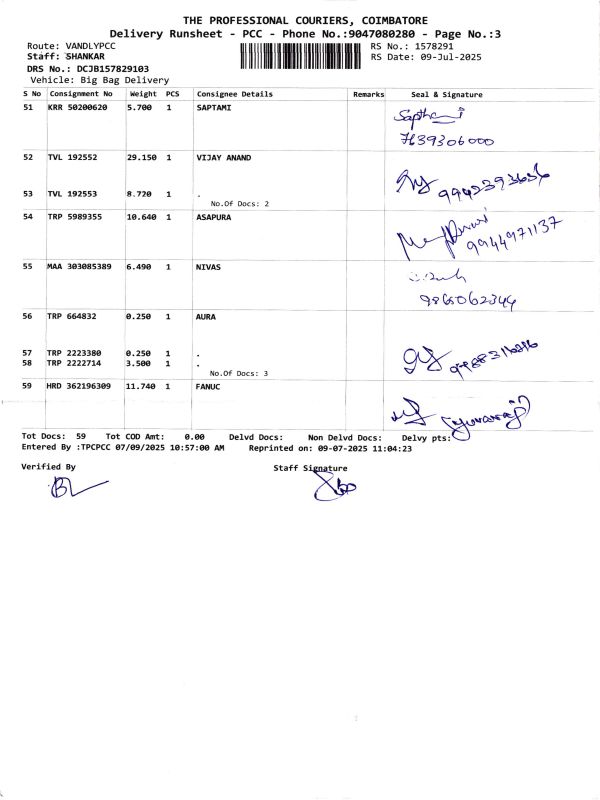 THE PROFESSIONAL COURIERS, COIMBATORE
Delivery Runsheet - PCC - Phone No.:9047080280 - Page No.:3
Route: VANDLYPCC RS No.: 1578291
Staff: SHANKAR RS Date: 09-Jul-2025
DRS No.: DCJB157829103
Vehicle: Big Bag Delivery
S No Consignment No Weight PCS Consignee Details Remarks Seal & Signature
51 KRR 50200620 5.700 1 SAPTAMI
7639306000
52 TVL 192552 29.150 1 VIJAY ANAND
53 TVL 192553 8.720 1 .
No.Of Docs: 2
54 TRP 5989355 10.640 1 ASAPURA
9944971137
55 MAA 303085389 6.490 1 NIVAS
9865062344
56 TRP 664832 0.250 1 AURA
57 TRP 2223380 0.250 1 .
58 TRP 2222714 3.500 1 .
No.Of Docs: 3
59 HRD 362196309 11.740 1 FANUC
Tot Docs: 59 Tot COD Amt: 0.00 Delvd Docs: Non Delvd Docs: Delvy pts:
Entered By :TPCPCC 07/09/2025 10:57:00 AM Reprinted on: 09-07-2025 11:04:23
Verified By Staff Signature